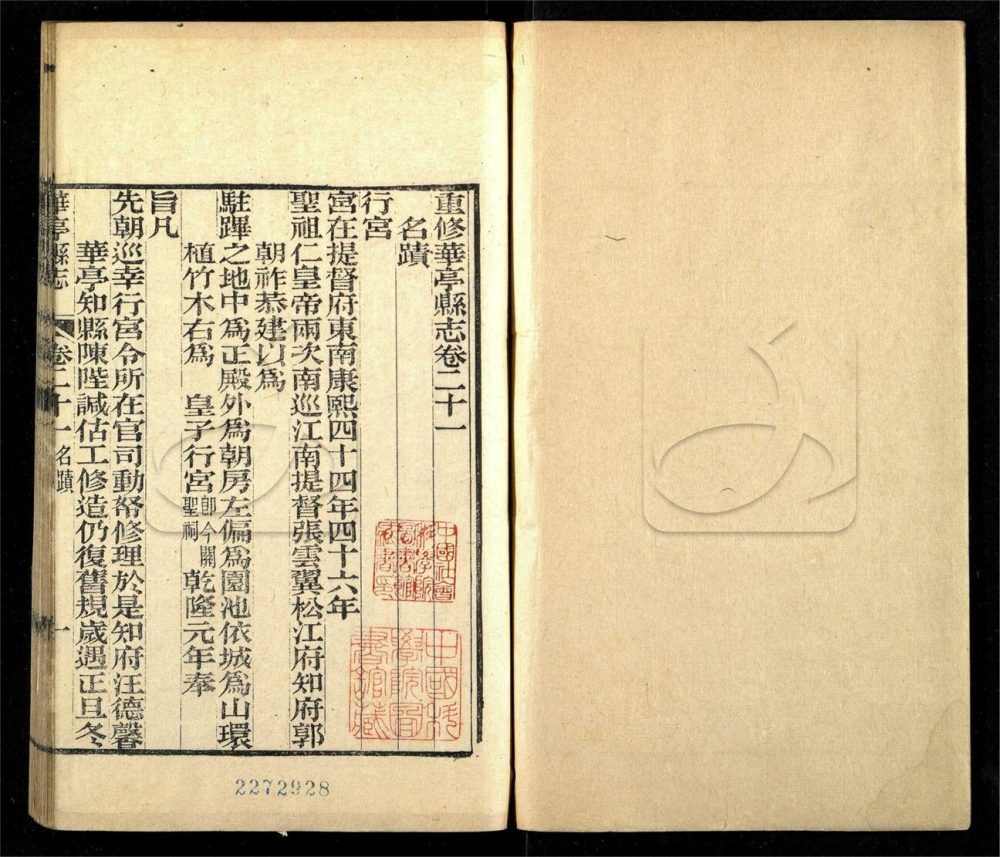 重修華亭縣志卷二十一
名蹟
行宮
宮在提督府東南康熙四十四年四十六年
聖祖仁皇帝兩次南巡江南提督張雲翼松江府知府郭
朝祚恭建以爲
駐蹕之地中爲正殿外爲朝房左偏爲園池依城爲山環
植竹木右爲　皇子行宮卽今關聖祠乾隆元年奉
旨凡
先朝巡幸行宮令所在官司動帑修理於是知府汪德馨
華亭知縣陳陞諴估工修造仍復舊規歲遇正旦冬
華亭縣志　卷二十一　名蹟　一
中國社會科學院
圖書館
中國科學院圖書館藏
2272928